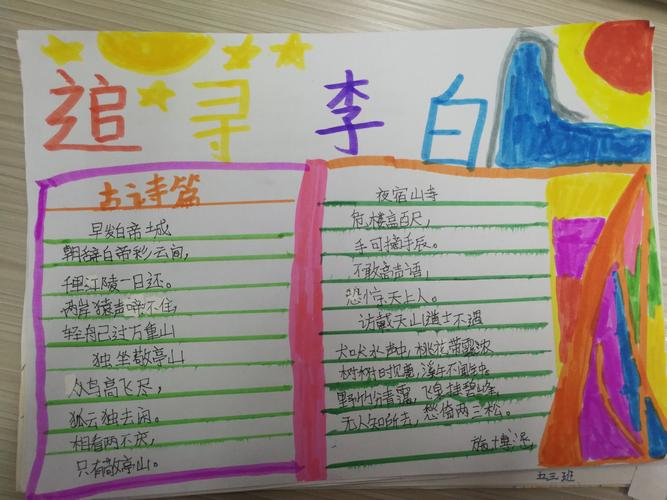 追寻李白
古诗篇
早发白帝土城
朝辞白帝彩云间,
千里江陵一日还。
两岸猿声啼不住,
轻舟已过万重山
独坐敬亭山
众鸟高飞尽,
狐云独去闲。
相看两不厌,
只有敬亭山。
夜宿山寺
危楼高百尺,
手可摘手辰。
不敢高声语,
恐惊天上人。
访戴天山道士不遇
犬吠水声中,桃花带露浓
树树时见鹿,溪午不闻钟
野竹分青霭,飞泉挂碧峰
无人知所去,愁倚两三松。
施博
五三班